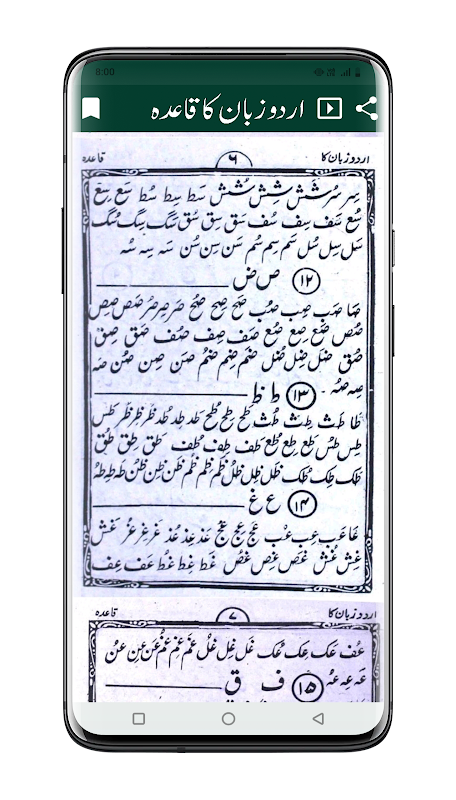 8:00
اردو زبان کا قاعدہ
اردو زبان کا ۶ قاعدہ
سِر سُر شَش شِش شُش سَط سِط سُط سَع سِع
سُع سَف سِف سُف سَق سِق سُق سَگ سِگ سُگ
سَل سِل سُل سَم سِم سُم سَن سِن سُن سَہ سِہ سُہ
۱۲ ص ض
صَا صَب صِب صُب صَح صِح صُح صَر صِر صُر صَص صِص
صُص ضَع ضِع ضُع صَف صِف صُف صَق صِق
صُق ضَل ضِل ضُل ضَم ضِم ضُم صَن صِن صُن صَہ
صِہ صُہ
۱۳ ط ظ
طَا طَث طِث طُث طَح طِح طُح طَد طِد طُد ظَر ظِر ظُر طَس
طِس طُس طَع طِع طُع طَف طِف طُف طَق طِق طُق
طَک طِک طُک ظَل ظِل ظُل ظَم ظِم ظُم ظَن ظِن ظُن طَہ طِہ طُہ
۱۴ ع غ
عَا عَب عِب عُب عَج عِج عُج عَد عِد عُد غَر غِر غُر غَش
غِش غُش غَص غِص غُص غَط غِط غُط عَف عِف
اردو زبان کا ۷ قاعدہ
عُف عَک عِک عُک غَل غِل غُل عَم عِم عُم عَن عِن عُن
عَہ عِہ عُہ
۱۵ ف ق